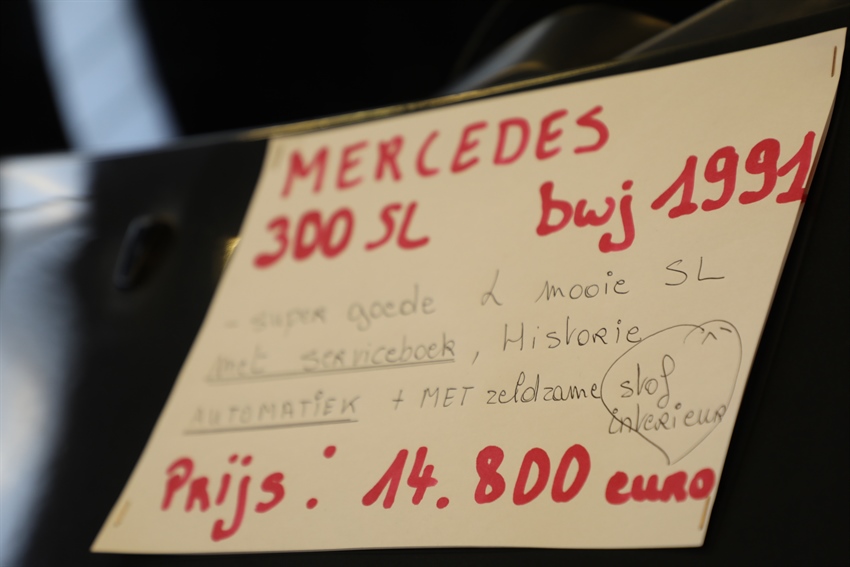 MERCEDES
300 SL bwj 1991
- super goede & mooie SL
met serviceboek, Historie
AUTOMATIEK + MET zeldzame stof
interieur
Prijs: 14.800 euro